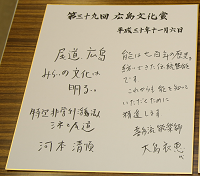 第三十九回 広島文化賞
平成三十年十一月六日
能は七百年の歴史。
続いてきた伝統芸能
です
これからも能を知って
いただくために
精進します
喜多流能楽師
大島衣恵
尾道、広島
みらいの文化は
明るい
特定非営利活動法人
河本清順